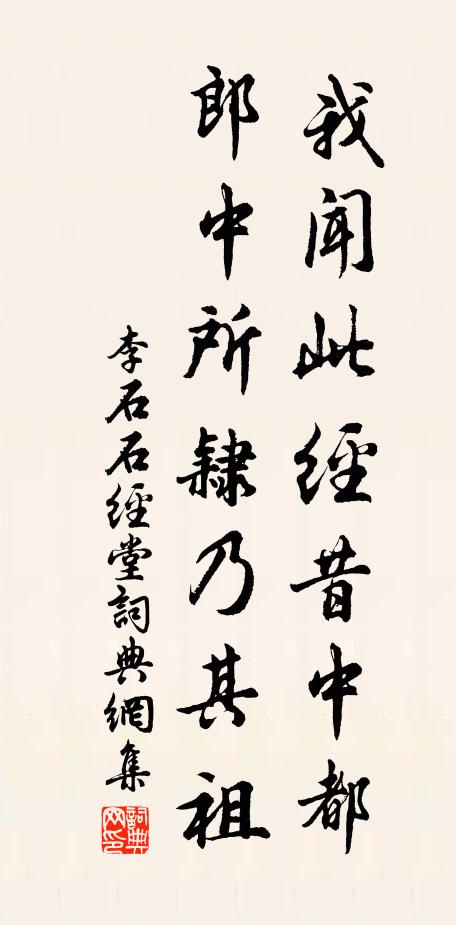 我聞此經昔中都
郎中所隸乃其祖
李石石經堂詞典網集
詞典網印